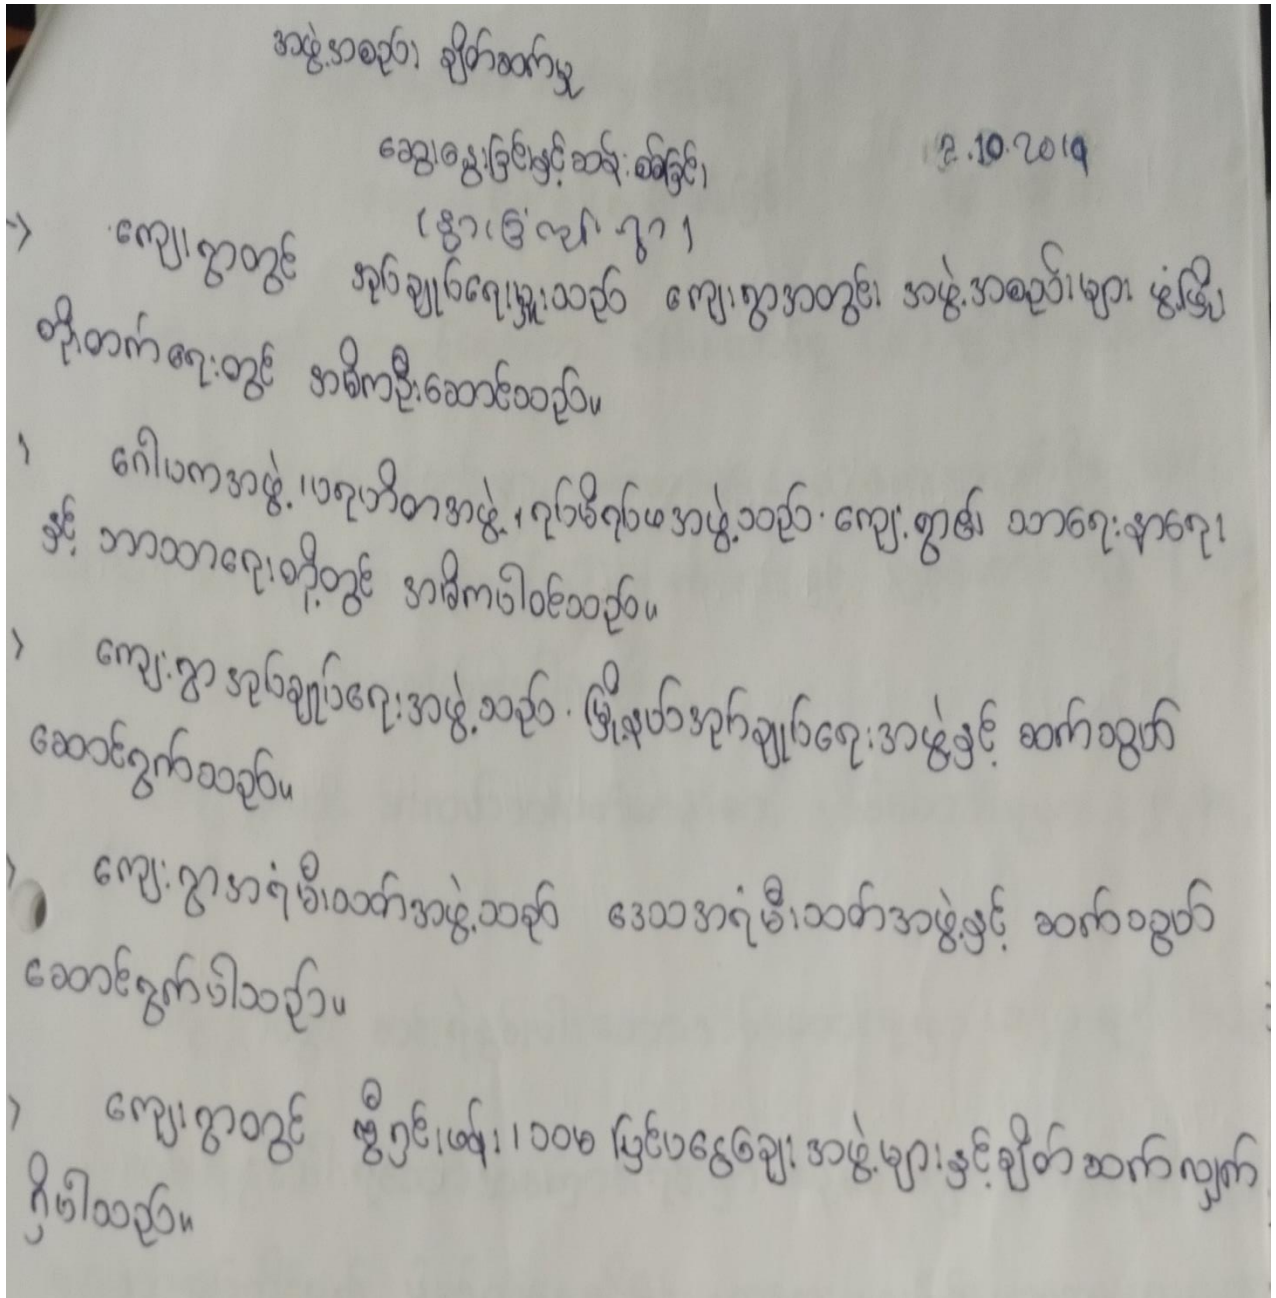 အဖွဲ့အစည်း ချိတ်ဆက်မှု
ဆွေးနွေးခြင်းနှင့်ဆန်းစစ်ခြင်း 2.10.2019
→ ကျေးရွာတွင် အုပ်ချုပ်ရေးမှူးသည် ကျေးရွာအတွင်း အဖွဲ့အစည်းများ ဖွံ့ဖြိုး
တိုးတက်ရေးတွင် အဓိကဦးဆောင်သည်။
ဂေါပကအဖွဲ့၊ ပရဟိတအဖွဲ့၊ ရပ်မိရပ်ဖအဖွဲ့သည် ကျေးရွာ၏ သာရေးနာရေး
နှင့် ဘာသာရေးတို့တွင် အဓိကပါဝင်သည်။
ကျေးရွာအုပ်ချုပ်ရေးအဖွဲ့သည် မြို့နယ်အုပ်ချုပ်ရေးအဖွဲ့နှင့် ဆက်သွယ်
ဆောင်ရွက်သည်။
ကျေးရွာအရံမီးသတ်အဖွဲ့သည် ဒေသအရံမီးသတ်အဖွဲ့နှင့် ဆက်သွယ်
ဆောင်ရွက်ပါသည်။
ကျေးရွာတွင် ပြင်ပငွေချေး အဖွဲ့များနှင့်ချိတ်ဆက်လျှက်
ရှိပါသည်။